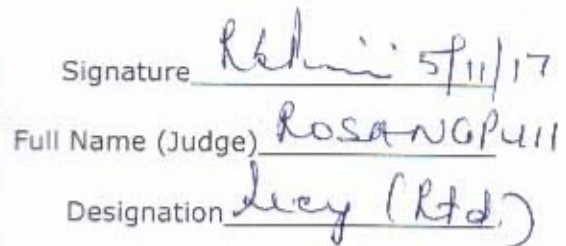 Signature 5/11/17
Full Name (Judge) ROSANGPUII
Designation Secy (Rtd.)